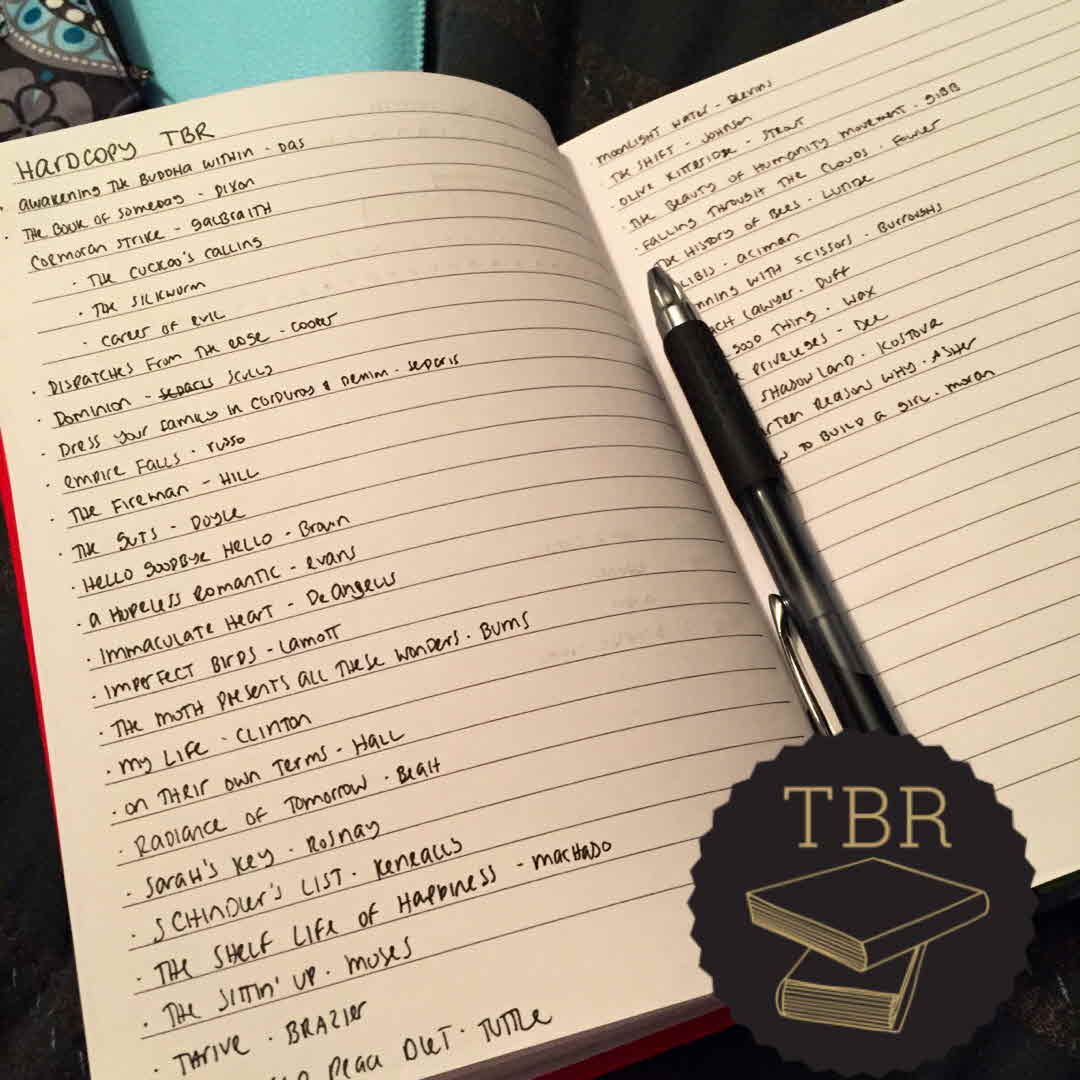 HARDCOPY TBR
AWAKENING THE BUDDHA WITHIN - DAS
· THE BOOK OF SOMEDAY - DIXON
CORMORAN STRIKE - GALBRAITH
· THE CUCKOO'S CALLING
· THE SILKWORM
· CAREER OF EVIL
· DISPATCHES FROM THE EDGE - COOPER
DOMINION - SCULLY
· DRESS YOUR FAMILY IN CORDUROY & DENIM - SEDARIS
· EMPIRE FALLS - RUSSO
· THE FIREMAN - HILL
· THE GUTS - DOYLE
· HELLO GOODBYE HELLO - BROWN
· A HOPELESS ROMANTIC - EVANS
· IMMACULATE HEART - DEANGELIS
· IMPERFECT BIRDS - LAMOTT
· THE MOTH PRESENTS ALL THESE WONDERS - BURNS
· MY LIFE - CLINTON
· ON THEIR OWN TERMS - HALL
· RADIANCE OF TOMORROW - BEAH
· SARAH'S KEY - ROSNAY
· SCHINDLER'S LIST - KENEALLY
· THE SHELF LIFE OF HAPPINESS - MACHADO
· THE SITTIN' UP - MOSES
· THRIVE - BRAZIER
PEACE DIET - TUTTLE
· MOONLIGHT WATER - BLEVINS
· THE SHIFT - JOHNSON
· OLIVE KITTERIDGE - STROUT
· THE BEAUTY OF HUMANITY MOVEMENT - GIBB
· FALLING THROUGH THE CLOUDS - FOWLER
THE HISTORY OF BEES - LUNDE
LIBIS - ACIMAN
NNING WITH SCISSORS - BURROUGHS
ACH LAWYER - DUFF
GOOD THING - WAX
PRIVILEGES - DEE
SHADOW LAND - KOSTOVA
RTEEN REASONS WHY - ASHER
W TO BUILD A GIRL - MORAN
TBR